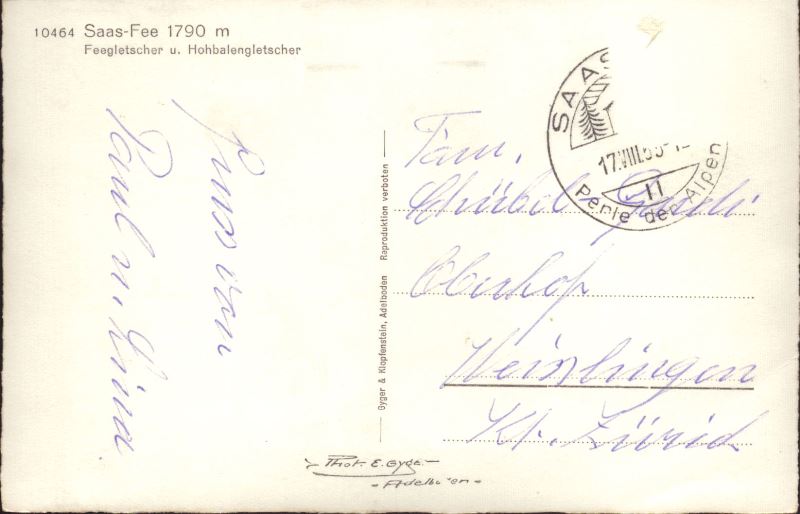 10464 Saas-Fee 1790 m
Feegletscher u. Hohbalengletscher
Gruss von
Paul u. Lina.
Gyger & Klopfenstein, Adelboden Reproduktion verboten
SAAS
17.VIII.
11
Perle der Alpen
Fam.
Oberhof
Weisslingen
Kt. Zürich
Phot. E. Gyger
Adelboden